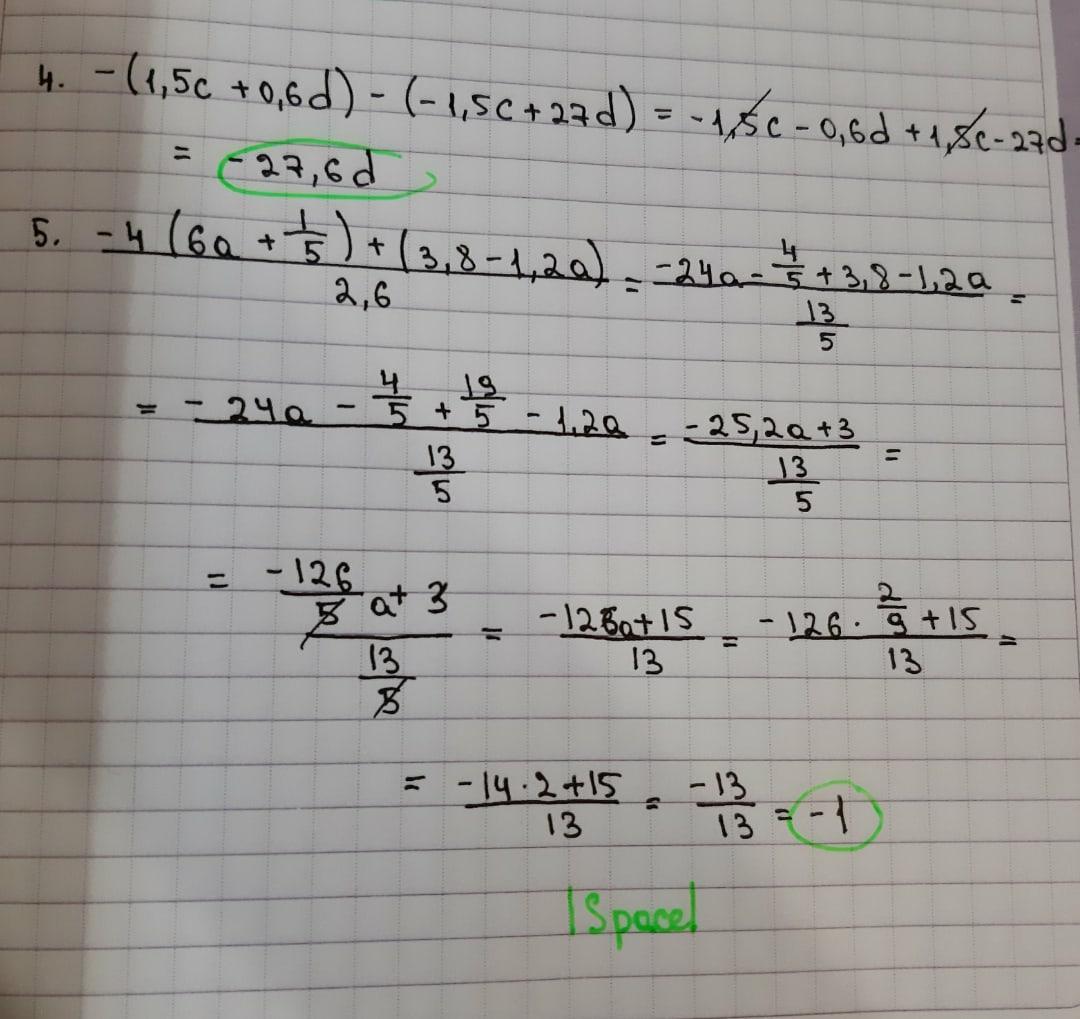 4. -(1,5c + 0,6d) - (-1,5c + 27d) = -1,5c - 0,6d + 1,5c - 27d =
= -27,6d
5. \frac{-4(6a + \frac{1}{5}) + (3,8 - 1,2a)}{2,6} = \frac{-24a - \frac{4}{5} + 3,8 - 1,2a}{\frac{13}{5}} =
= \frac{-24a - \frac{4}{5} + \frac{19}{5} - 1,2a}{\frac{13}{5}} = \frac{-25,2a + 3}{\frac{13}{5}} =
= \frac{\frac{-126}{5}a + 3}{\frac{13}{5}} = \frac{-126a + 15}{13} = \frac{-126 \cdot \frac{2}{9} + 15}{13} =
= \frac{-14 \cdot 2 + 15}{13} = \frac{-13}{13} = -1
|Space|